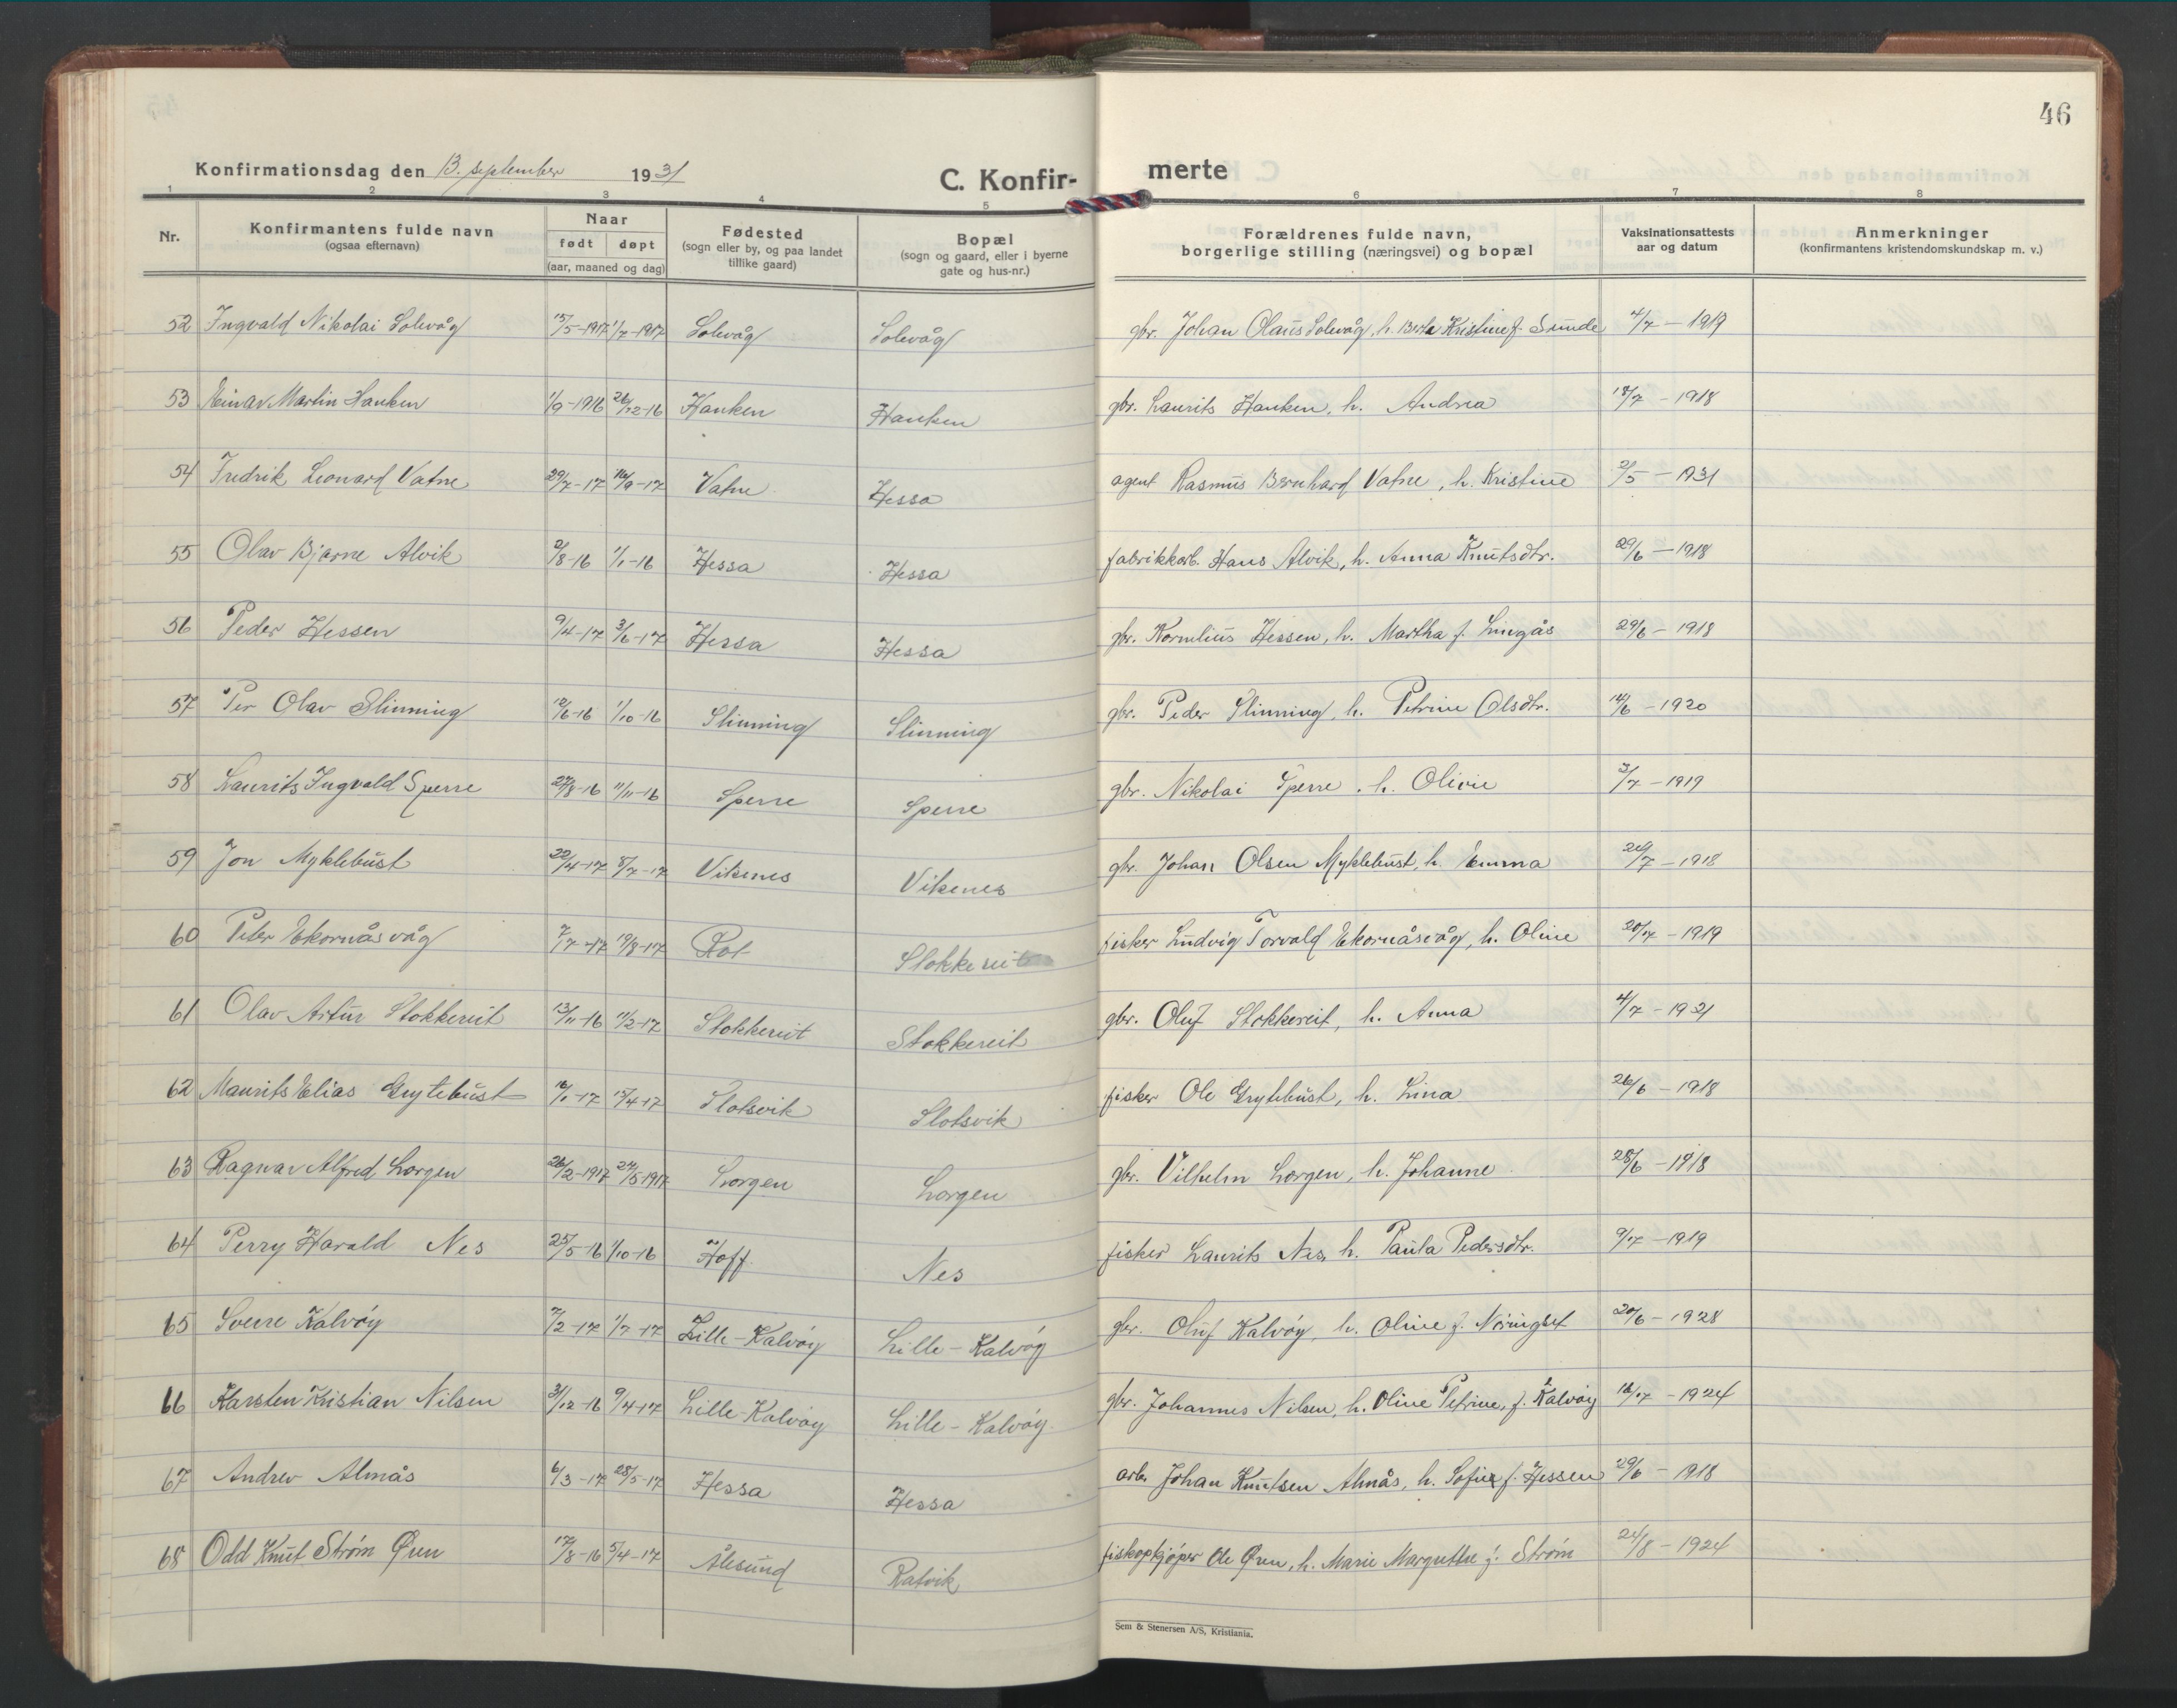 46
Konfirmationsdag den 13. september 1931
C. Konfir- merte
1 2 3 4 5 6 7 8
Nr. Konfirmantens fulde navn (ogsaa efternavn) Naar født døpt (aar, maaned og dag) Fødested (sogn eller by, og paa landet tillike gaard) Bopæl (sogn og gaard, eller i byerne gate og hus-nr.) Forældrenes fulde navn, borgerlige stilling (næringsvei) og bopæl Vaksinationsattests aar og datum Anmerkninger (konfirmantens kristendomskundskap m. v.)
52 Ingvald Nikolai Solevåg 15/5-1917 1/7-1917 Solevåg Solevåg gbr. Johan Olaus Solevåg, h. Berte Kristine f. Sunde 4/7 - 1919
53 Einar Martin Hanken 1/9-1916 26/12-16 Hanken Hanken gbr. Laurits Hanken, h. Andrea 18/7 - 1918
54 Fredrik Leonard Vatne 29/7-17 16/9-17 Vatne Hessa agent Rasmus Bernhard Vatne, h. Kristine 2/5 - 1931
55 Olav Bjarne Alvik 2/8-16 1/1-16 Hessa Hessa fabrikkarb. Hans Alvik, h. Anna Knutsdtr. 29/6 - 1918
56 Peder Hessen 9/4-17 3/6-17 Hessa Hessa gbr. Kornelius Hessen, h. Martha f. Lingås 29/6 - 1918
57 Per Olav Slinning 12/6-16 1/10-16 Slinning Slinning gbr. Peder Slinning, h. Petrine Olsdtr. 14/6 - 1920
58 Laurits Ingvald Sperre 27/8-16 11/11-16 Sperre Sperre gbr. Nikolai Sperre, h. Olivie 3/7 - 1919
59 Jon Myklebust 22/4-17 8/7-17 Vikenes Vikenes gbr. Johan Olsen Myklebust, h. Emma 24/7 - 1918
60 Peter Ekornåsvåg 7/7-17 19/8-17 Rot Stokkereit fisker Ludvig Torvald Ekornåsvåg, h. Oline 20/7 - 1919
61 Olav Artur Stokkereit 13/11-16 11/2-17 Stokkereit Stokkereit gbr. Oluf Stokkereit, h. Anna 4/7 - 1921
62 Maurits Elias Grytebust 16/1-17 15/4-17 Slotsvik Slotsvik fisker Ole Grytebust, h. Lina 26/6 - 1918
63 Ragnar Alfred Lorgen 26/2-1917 27/5-1917 Lorgen Lorgen gbr. Vilhelm Lorgen, h. Johanne 28/6 - 1918
64 Perry Harald Nes 25/5-16 1/10-16 Hoff Nes fisker Laurits Nes, h. Paula Pedersdtr. 9/7 - 1919
65 Sverre Kalvøy 7/2-17 1/7-17 Lille-Kalvøy Lille-Kalvøy gbr. Oluf Kalvøy, h. Oline f. Nøringset 20/6 - 1928
66 Karsten Kristian Nilsen 31/12-16 9/4-17 Lille-Kalvøy Lille-Kalvøy gbr. Johannes Nilsen, h. Oline Petrine, f. Kalvøy 18/7 - 1924
67 Andrev Almås 6/3-17 28/5-17 Hessa Hessa arb. Johan Knutsen Almås, h. Sofie f. Hessen 29/6 - 1918
68 Odd Knut Strøm Øren 17/8-16 5/4-17 Ålesund Ratvik fiskopkjøper Ole Øren, h. Marie Margrethe f. Strøm 24/8 - 1924
Sem & Stenersen A/S, Kristiania.